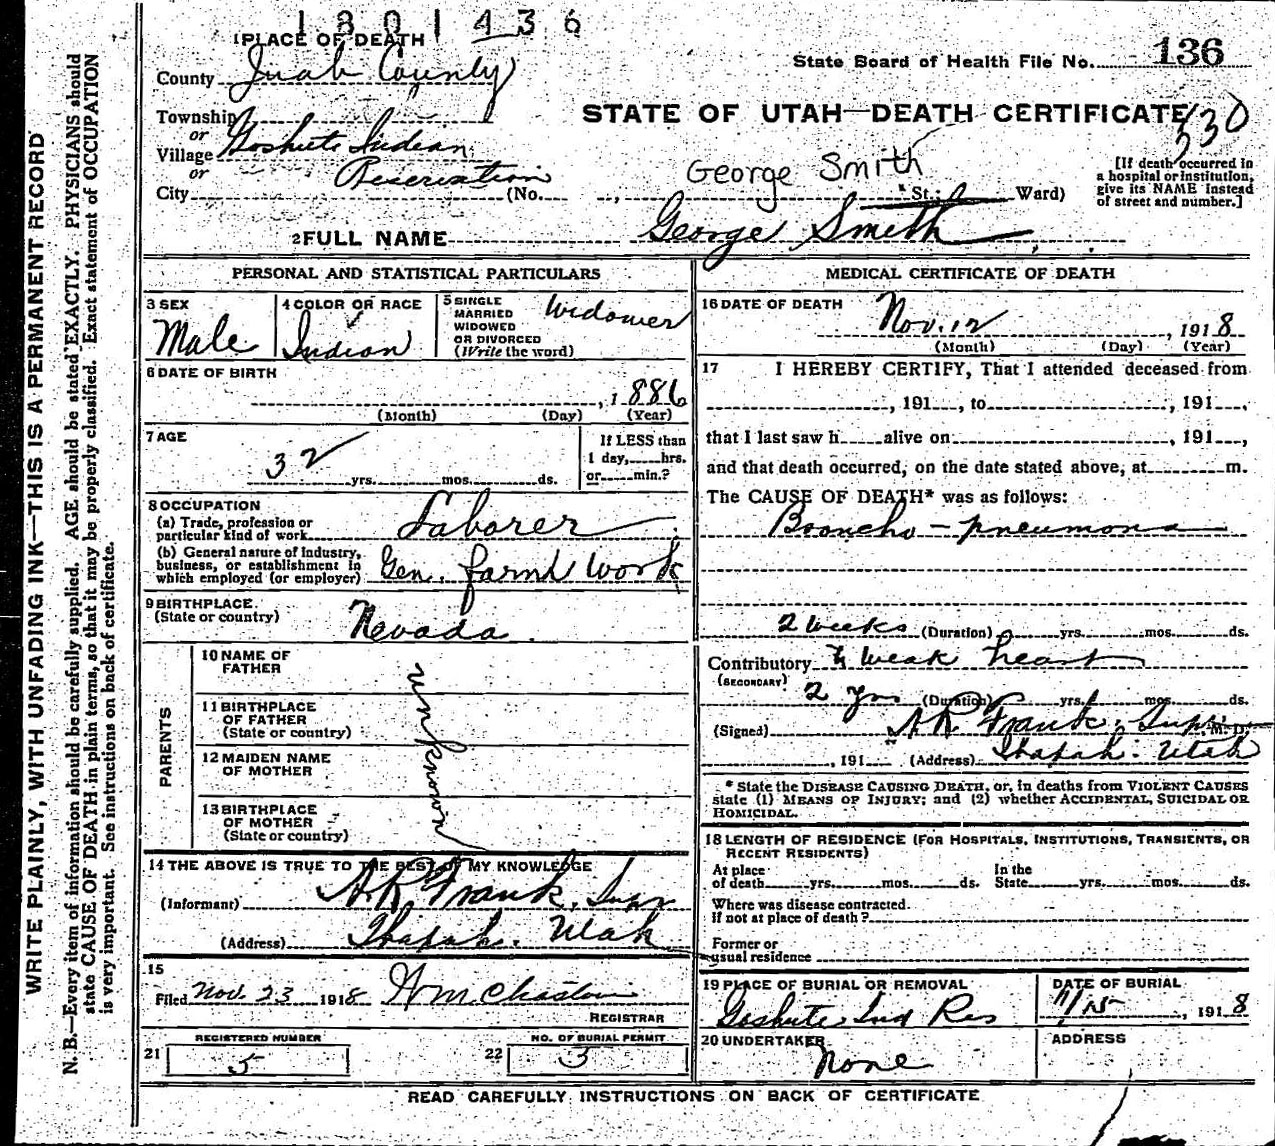 1801436
1 PLACE OF DEATH
State Board of Health File No. 136
County Juab County
STATE OF UTAH—DEATH CERTIFICATE
530
Township
or
Village Goshute Indian
or
Reservation
City (No. , St; Ward)
George Smith
[If death occurred in
a hospital or institution,
give its NAME instead
of street and number.]
2 FULL NAME George Smith
PERSONAL AND STATISTICAL PARTICULARS
3 SEX
Male
4 COLOR OR RACE
Indian
5 SINGLE
MARRIED
WIDOWED
OR DIVORCED
(Write the word)
Widower
6 DATE OF BIRTH
, 1886
(Month) (Day) (Year)
7 AGE
32 yrs. mos. ds.
If LESS than
1 day, hrs.
or min.?
8 OCCUPATION
(a) Trade, profession or
particular kind of work Laborer
(b) General nature of Industry,
business, or establishment in
which employed (or employer) Gen. farm work
9 BIRTHPLACE
(State or country) Nevada
PARENTS
10 NAME OF
FATHER
11 BIRTHPLACE
OF FATHER
(State or country)
12 MAIDEN NAME
OF MOTHER
13 BIRTHPLACE
OF MOTHER
(State or country)
unknown
14 THE ABOVE IS TRUE TO THE BEST OF MY KNOWLEDGE
(Informant) A R Frank, Supt
(Address) Ibapah. Utah
15
Filed Nov. 23 1918 REGISTRAR
REGISTERED NUMBER
21 5
NO. OF BURIAL PERMIT
22 3
MEDICAL CERTIFICATE OF DEATH
16 DATE OF DEATH
Nov. 12 , 1918
(Month) (Day) (Year)
17 I HEREBY CERTIFY, That I attended deceased from
, 191 , to , 191 ,
that I last saw h alive on , 191 ,
and that death occurred, on the date stated above, at m.
The CAUSE OF DEATH* was as follows:
Broncho - pneumona
2 weeks (Duration) yrs. mos. ds.
Contributory weak heart
(SECONDARY)
2 yrs (Duration) yrs. mos. ds.
(Signed) A R Frank, Supt. M. D.
, 191 (Address) Ibapah. Utah
* State the DISEASE CAUSING DEATH, or, in deaths from VIOLENT CAUSES
state (1) MEANS OF INJURY; and (2) whether ACCIDENTAL, SUICIDAL OR
HOMICIDAL.
18 LENGTH OF RESIDENCE (FOR HOSPITALS, INSTITUTIONS, TRANSIENTS, OR
RECENT RESIDENTS)
At place
of death yrs. mos. ds.
In the
State yrs. mos. ds.
Where was disease contracted
if not at place of death?
Former or
usual residence
19 PLACE OF BURIAL OR REMOVAL
Goshute Ind Res
DATE OF BURIAL
11/15 , 1918
20 UNDERTAKER
None
ADDRESS
READ CAREFULLY INSTRUCTIONS ON BACK OF CERTIFICATE
WRITE PLAINLY, WITH UNFADING INK—THIS IS A PERMANENT RECORD
N. B.—Every item of information should be carefully supplied. AGE should be stated EXACTLY. PHYSICIANS should
state CAUSE OF DEATH in plain terms, so that it may be properly classified. Exact statement of OCCUPATION
is very important. See instructions on back of certificate.